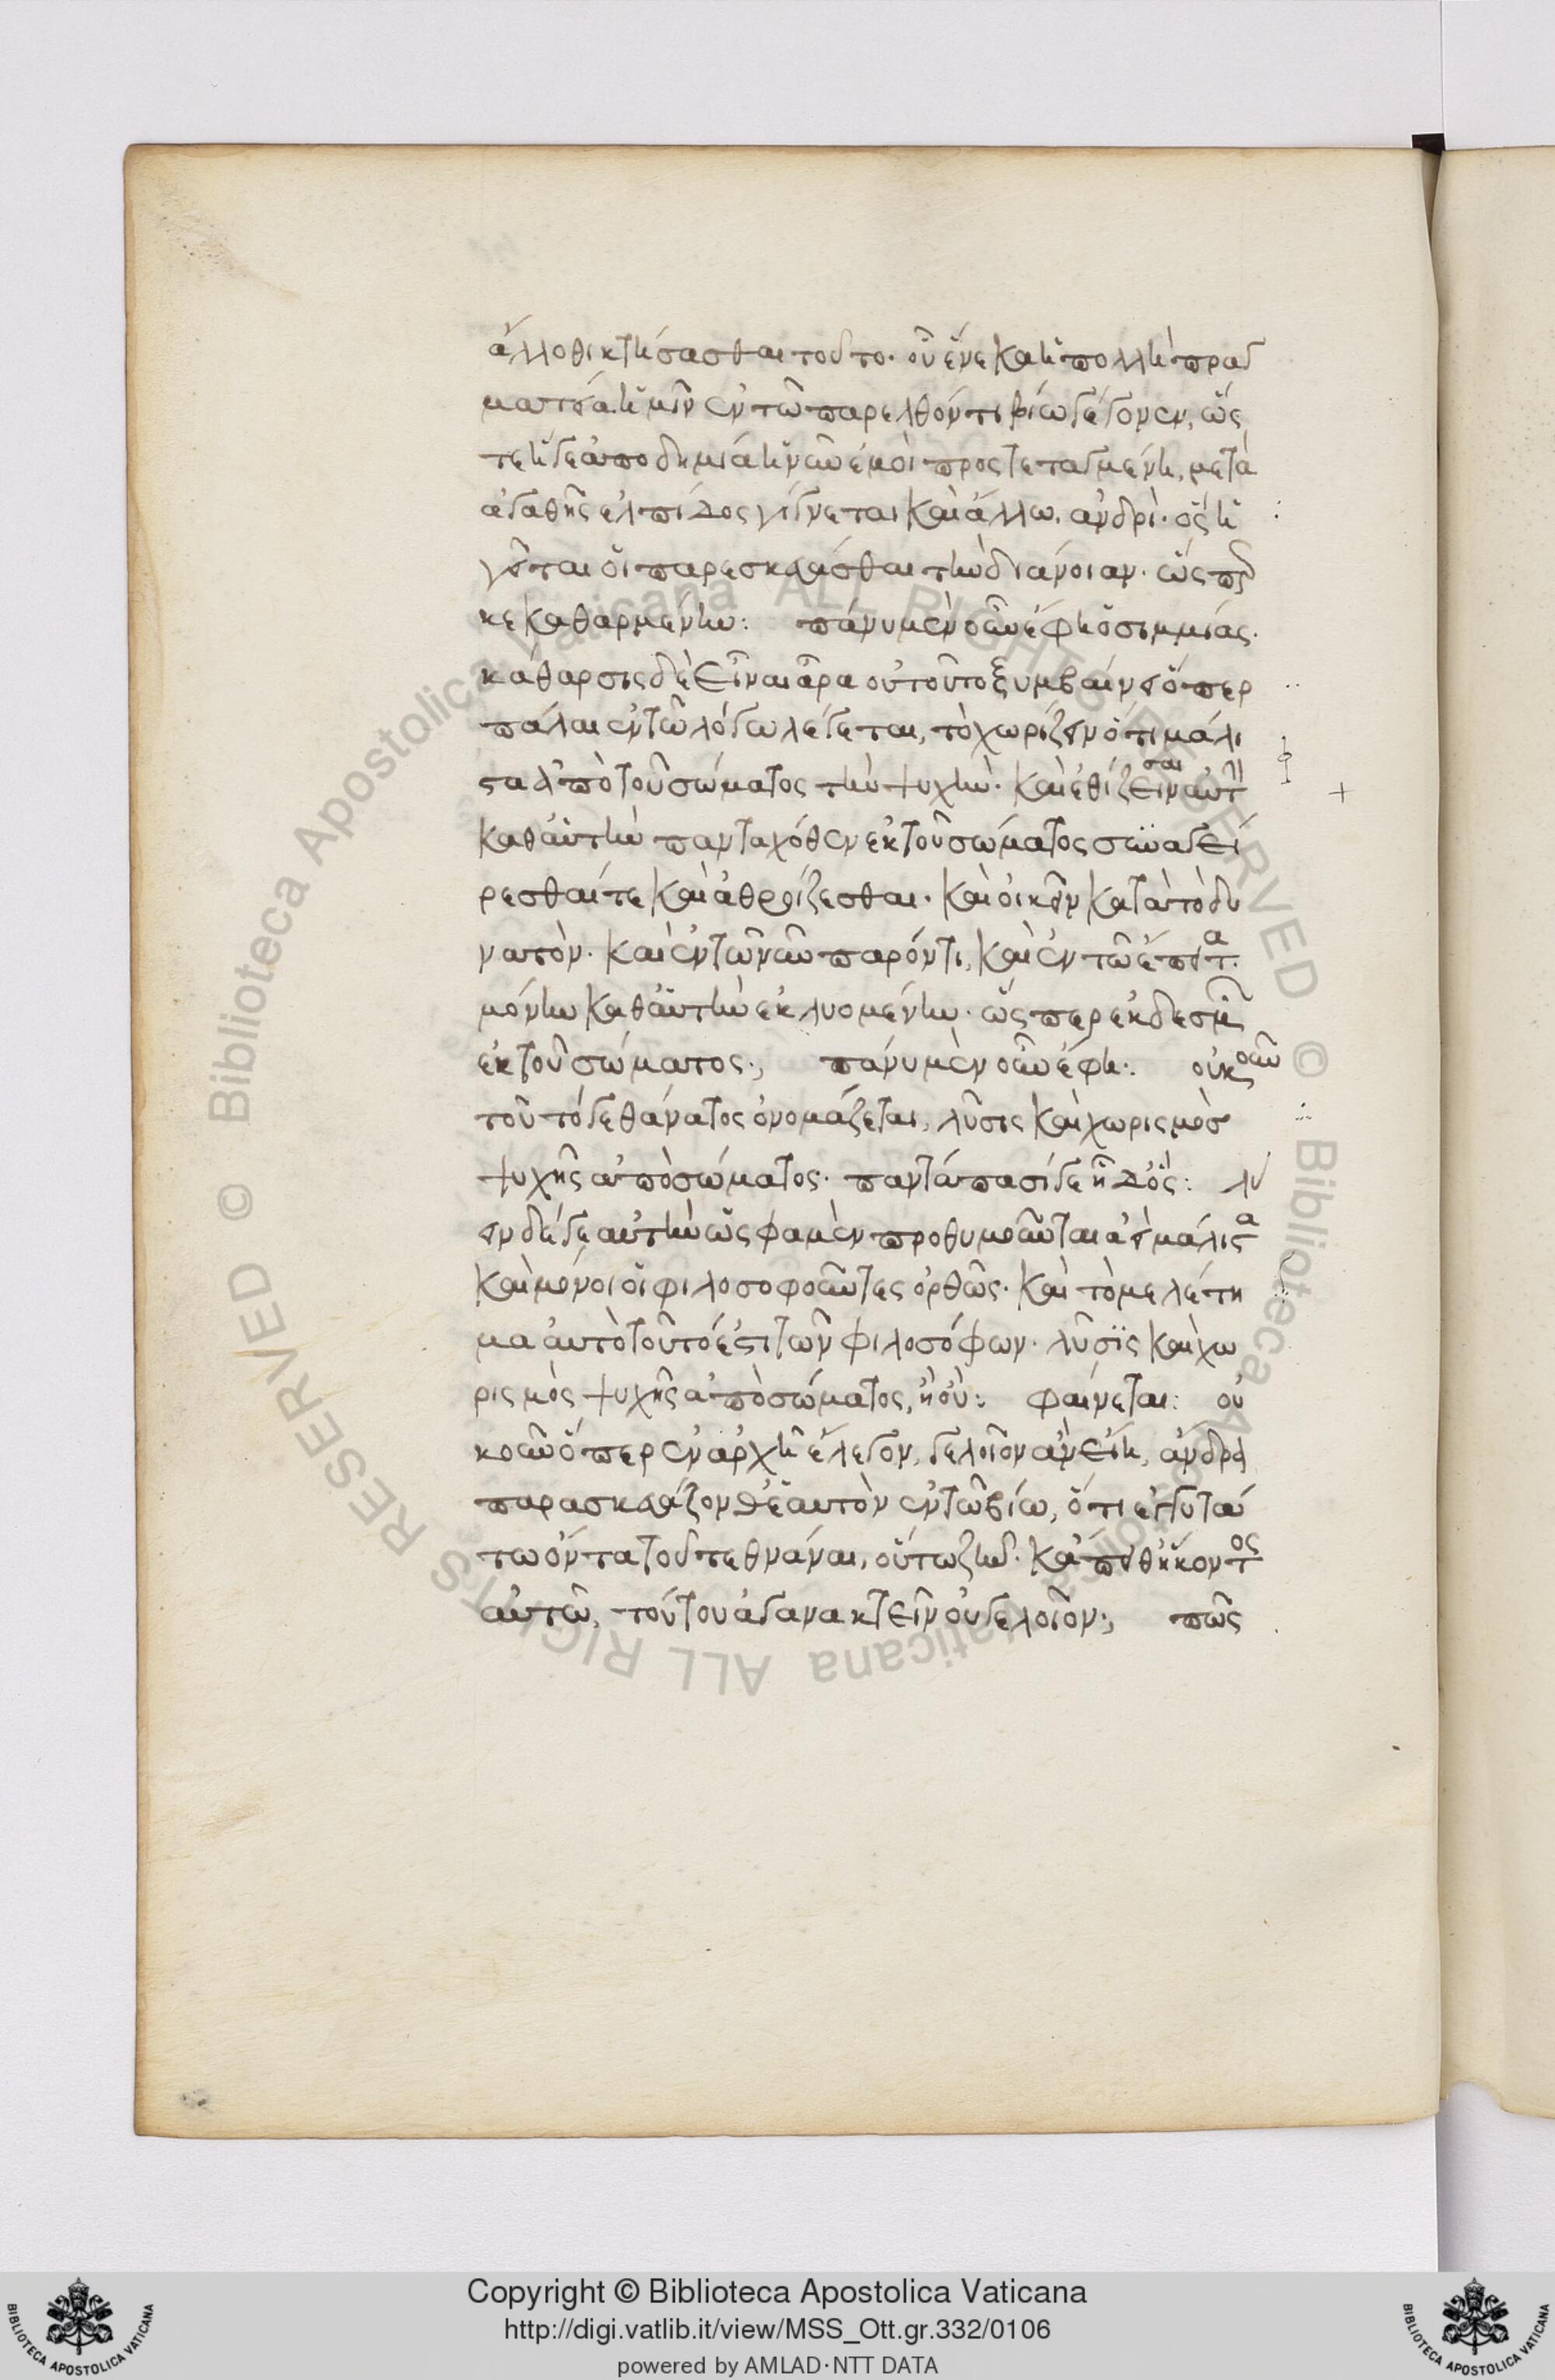 ἄλλοθι κτήσασθαι τοῦτο· οὗ ἕνεκα ἡ πολλὴ πραγ
ματεία ἡμῖν ἐν τῶ παρελθόντι βίω γέγονεν, ὥς
τε ἥγε ἀποδημία ἡ νῦν ἐμοὶ προστεταγμένη, μετὰ
ἀγαθῆς ἐλπίδος γίγνεται καὶ ἄλλω ἀνδρὶ· ὃς ἡ
γεῖται οἱ παρεσκευάσθαι τὴν διάνοιαν· ὥσπερ
κεκαθαρμένην: πάνυ μὲν οὖν ἔφη ὁ σιμμίας·
κάθαρσις δὲ εἶναι ἆρα οὐ τοῦτο ξυμβαίνει ὅπερ
πάλαι ἐν τῶ λόγω λέγεται, τὸ χωρίζειν ὅτι μάλι
στα ἀπὸ τοῦ σώματος τὴν ψυχὴν· καὶ ἐθίζειν αὐτὴν
σαι
καθ' αὑτὴν πανταχόθεν ἐκ τοῦ σώματος συναγεί
ρεσθαί τε καὶ ἀθροίζεσθαι· καὶ οἰκεῖν κατὰ τὸ δυ
νατὸν· καὶ ἐν τῶ νῦν παρόντι, καὶ ἐν τῶ ἔπειτα·
μόνην καθ' αὑτὴν ἐκλυομένην· ὥσπερ ἐκ δεσμῶν
ἐκ τοῦ σώματος; πάνυ μὲν οὖν ἔφη: οὐκοῦν
τοῦτό γε θάνατος ὀνομάζεται, λῦσις καὶ χωρισμὸς
ψυχῆς ἀπὸ σώματος· παντάπασί γε ἦ δ' ὅς: λύ
ειν δέ γε αὐτὴν ὥς φαμεν προθυμοῦνται ἀεὶ μάλιστα
καὶ μόνοι οἱ φιλοσοφοῦντες ὀρθῶς· καὶ τὸ μελέτη
μα αὐτὸ τοῦτό ἐστι τῶν φιλοσόφων· λῦσις καὶ χω
ρισμὸς ψυχῆς ἀπὸ σώματος, ἢ οὔ: φαίνεται: οὐ
κοῦν ὅπερ ἐν ἀρχῆ ἔλεγον, γελοῖον ἂν εἴη, ἄνδρα
παρασκευάζονθ' ἑαυτὸν ἐν τῶ βίω, ὅτι ἐγγυτά
τω ὄντα τοῦ τεθνάναι, οὕτω ζῆν· κἄπειθ' ἥκοντος
αὐτῶ, τούτου ἀγανακτεῖν οὐ γελοῖον; πῶς